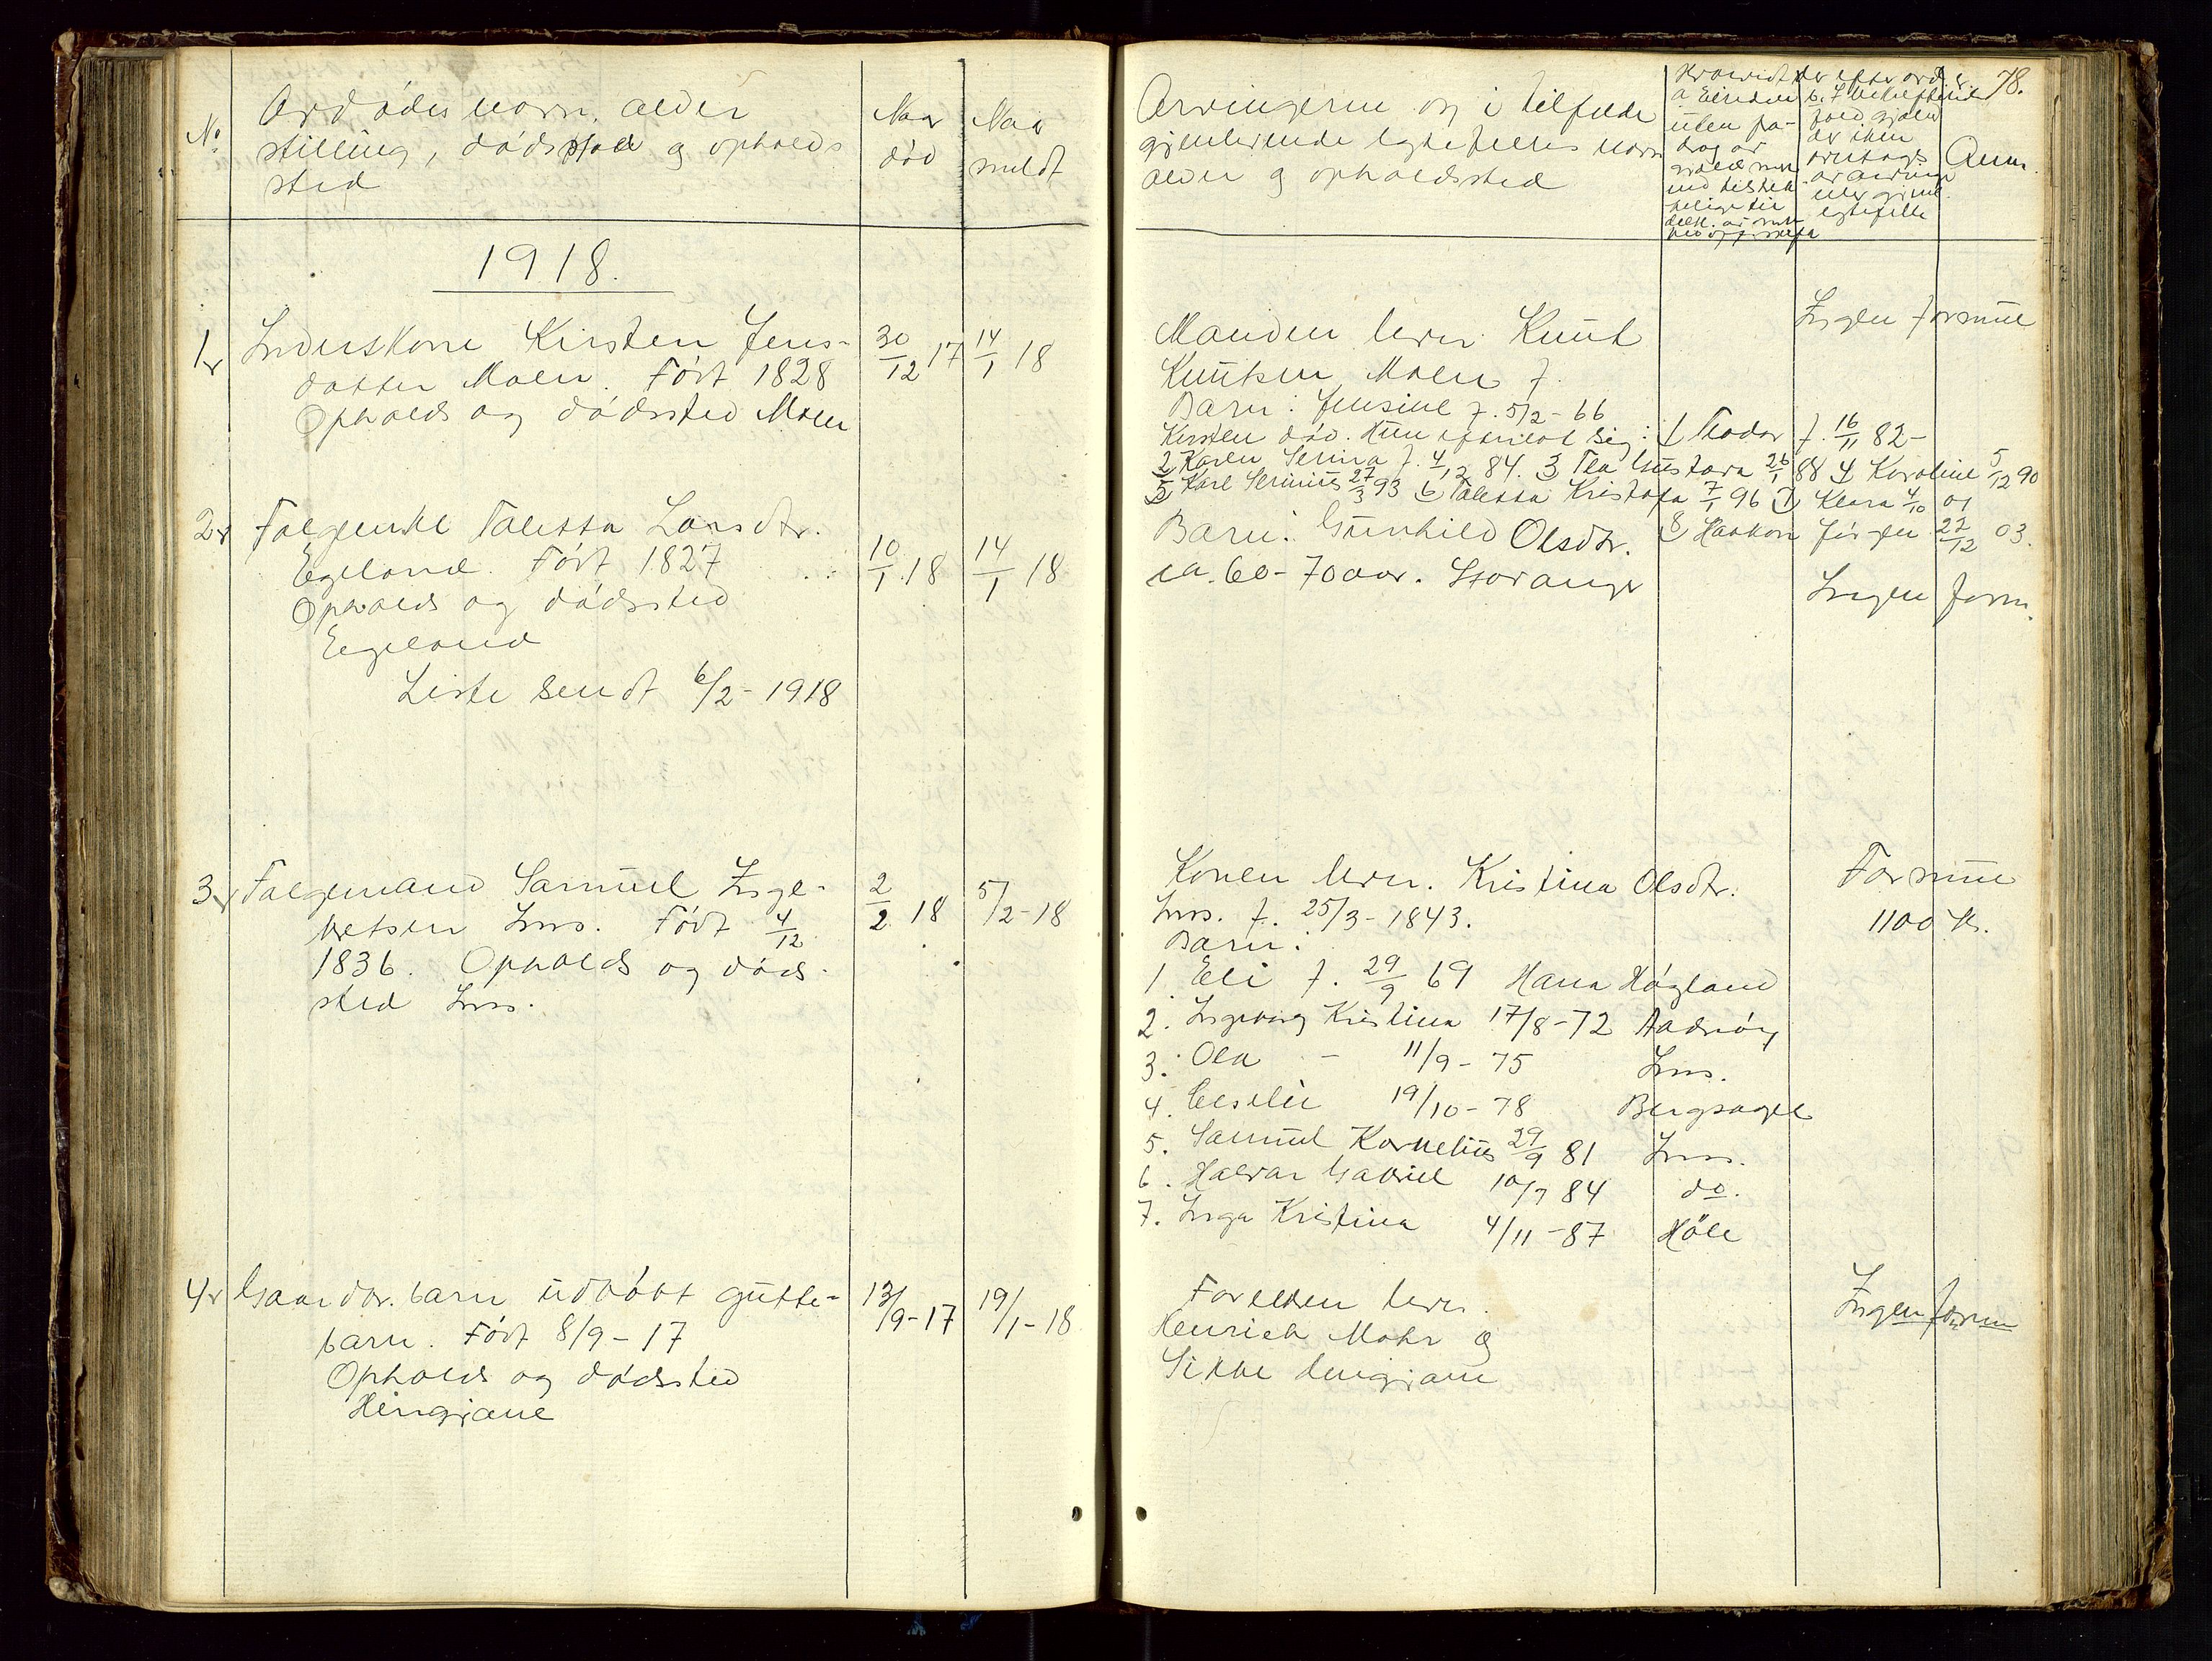 78.
No
Avdødes navn, alder
stilling, dødssted og opholds
sted
Naar
død
Naar
meldt
Arvingerne og i tilfælde
gjenlevende egtefælles navn
alder og opholdssted
Anm.
1918.
1
Inderskone Kirsten Jens-
datter Moen. Født 1828
Opholds og dødssted Moen
30/12 17
14/1 18
Manden lever Knut
Knutsen Moen f.
Barn: Jensine f. 5/2-66
Kirsten død. Hun efterlod sig: 1 Teodor f. 16/11 82-
2 Karen Serina f. 4/12 84. 3 Tea Gustava 26/1 88 4 Karoline 5/12 90
5 Karl Serinius 27/3 93 6 Taletta Kristofa 7/1 96 7 Klara 4/10 01
8 Haakon Jørgen 22/12 03.
Ingen formue
2
Følgeenke Taletta Larsdtr.
Egeland. Født 1827
Opholds og dødssted
Eegeland
10/1 18
14/1 18
Barn: Gunhild Olsdtr.
ca. 60-70 aar. Stavanger
Ingen form.
Liste sendt 6/2-1918
3
Følgemand Samuel Inge-
bretsen Ims. Født 4/12
1836. Opholds og døds-
sted Ims.
2/2 18
5/2-18
Konen lever. Kristina Olsdtr.
Ims. f. 25/3-1843.
Barn:
1. Eli f. 29/9 69 Hana Høgland
2. Ingeborg Kristina 17/8-72 Aadnøy
3. Ola - 11/9-75 Ims.
4. Cecilie 19/10-78 Bergsagel
5. Samuel Kornelius 29/9 81 Ims.
6. Halvar Gabriel 10/7 84 do.
7. Inga Kristina 4/11-87 Høle
Formue
1100 kr.
4
Gaardbr. barn udøbt gutte-
barn. Født 8/9-17
Opholds og dødssted
Hengjane
13/9-17
19/1-18
Forældren lever.
Henrich Mohr og
Sikke Hengjane
Ingen formue